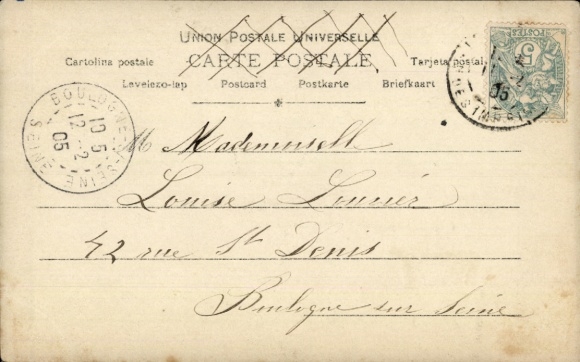 UNION POSTALE UNIVERSELLE
CARTE POSTALE
Cartolina postale
Tarjeta postal
Levelezo-lap Postcard Postkarte Briefkaart
BOULOGNE-S-SEINE
SEINE
10 5
12 - 2
05
5
POSTES
05
IMPRIMÉS
M Mademoiselle
Louise
42 rue St Denis
Boulogne sur Seine